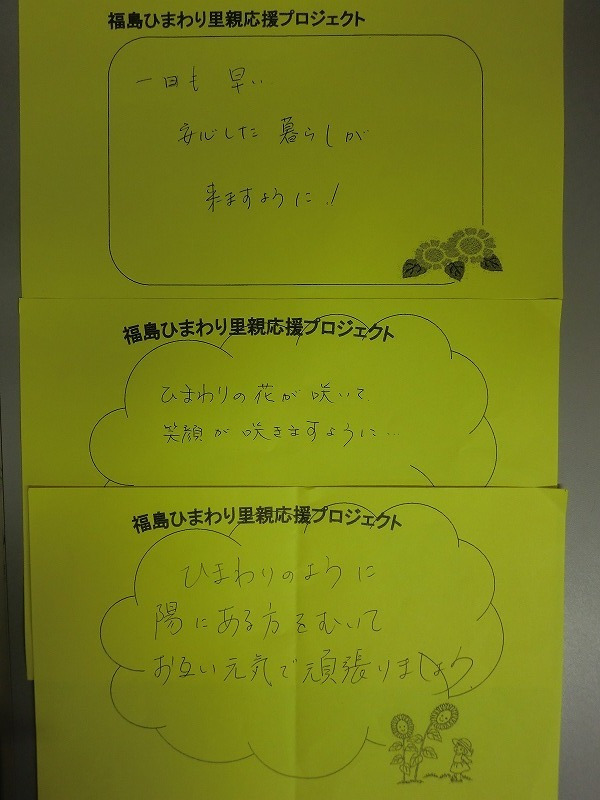 福島ひまわり里親応援プロジェクト
一日も早い
安心した暮らしが
来ますように!
福島ひまわり里親応援プロジェクト
ひまわりの花が咲いて、
笑顔が咲きますように…
福島ひまわり里親応援プロジェクト
ひまわりのように
陽にある方をむいて
お互い元気で頑張りましょう